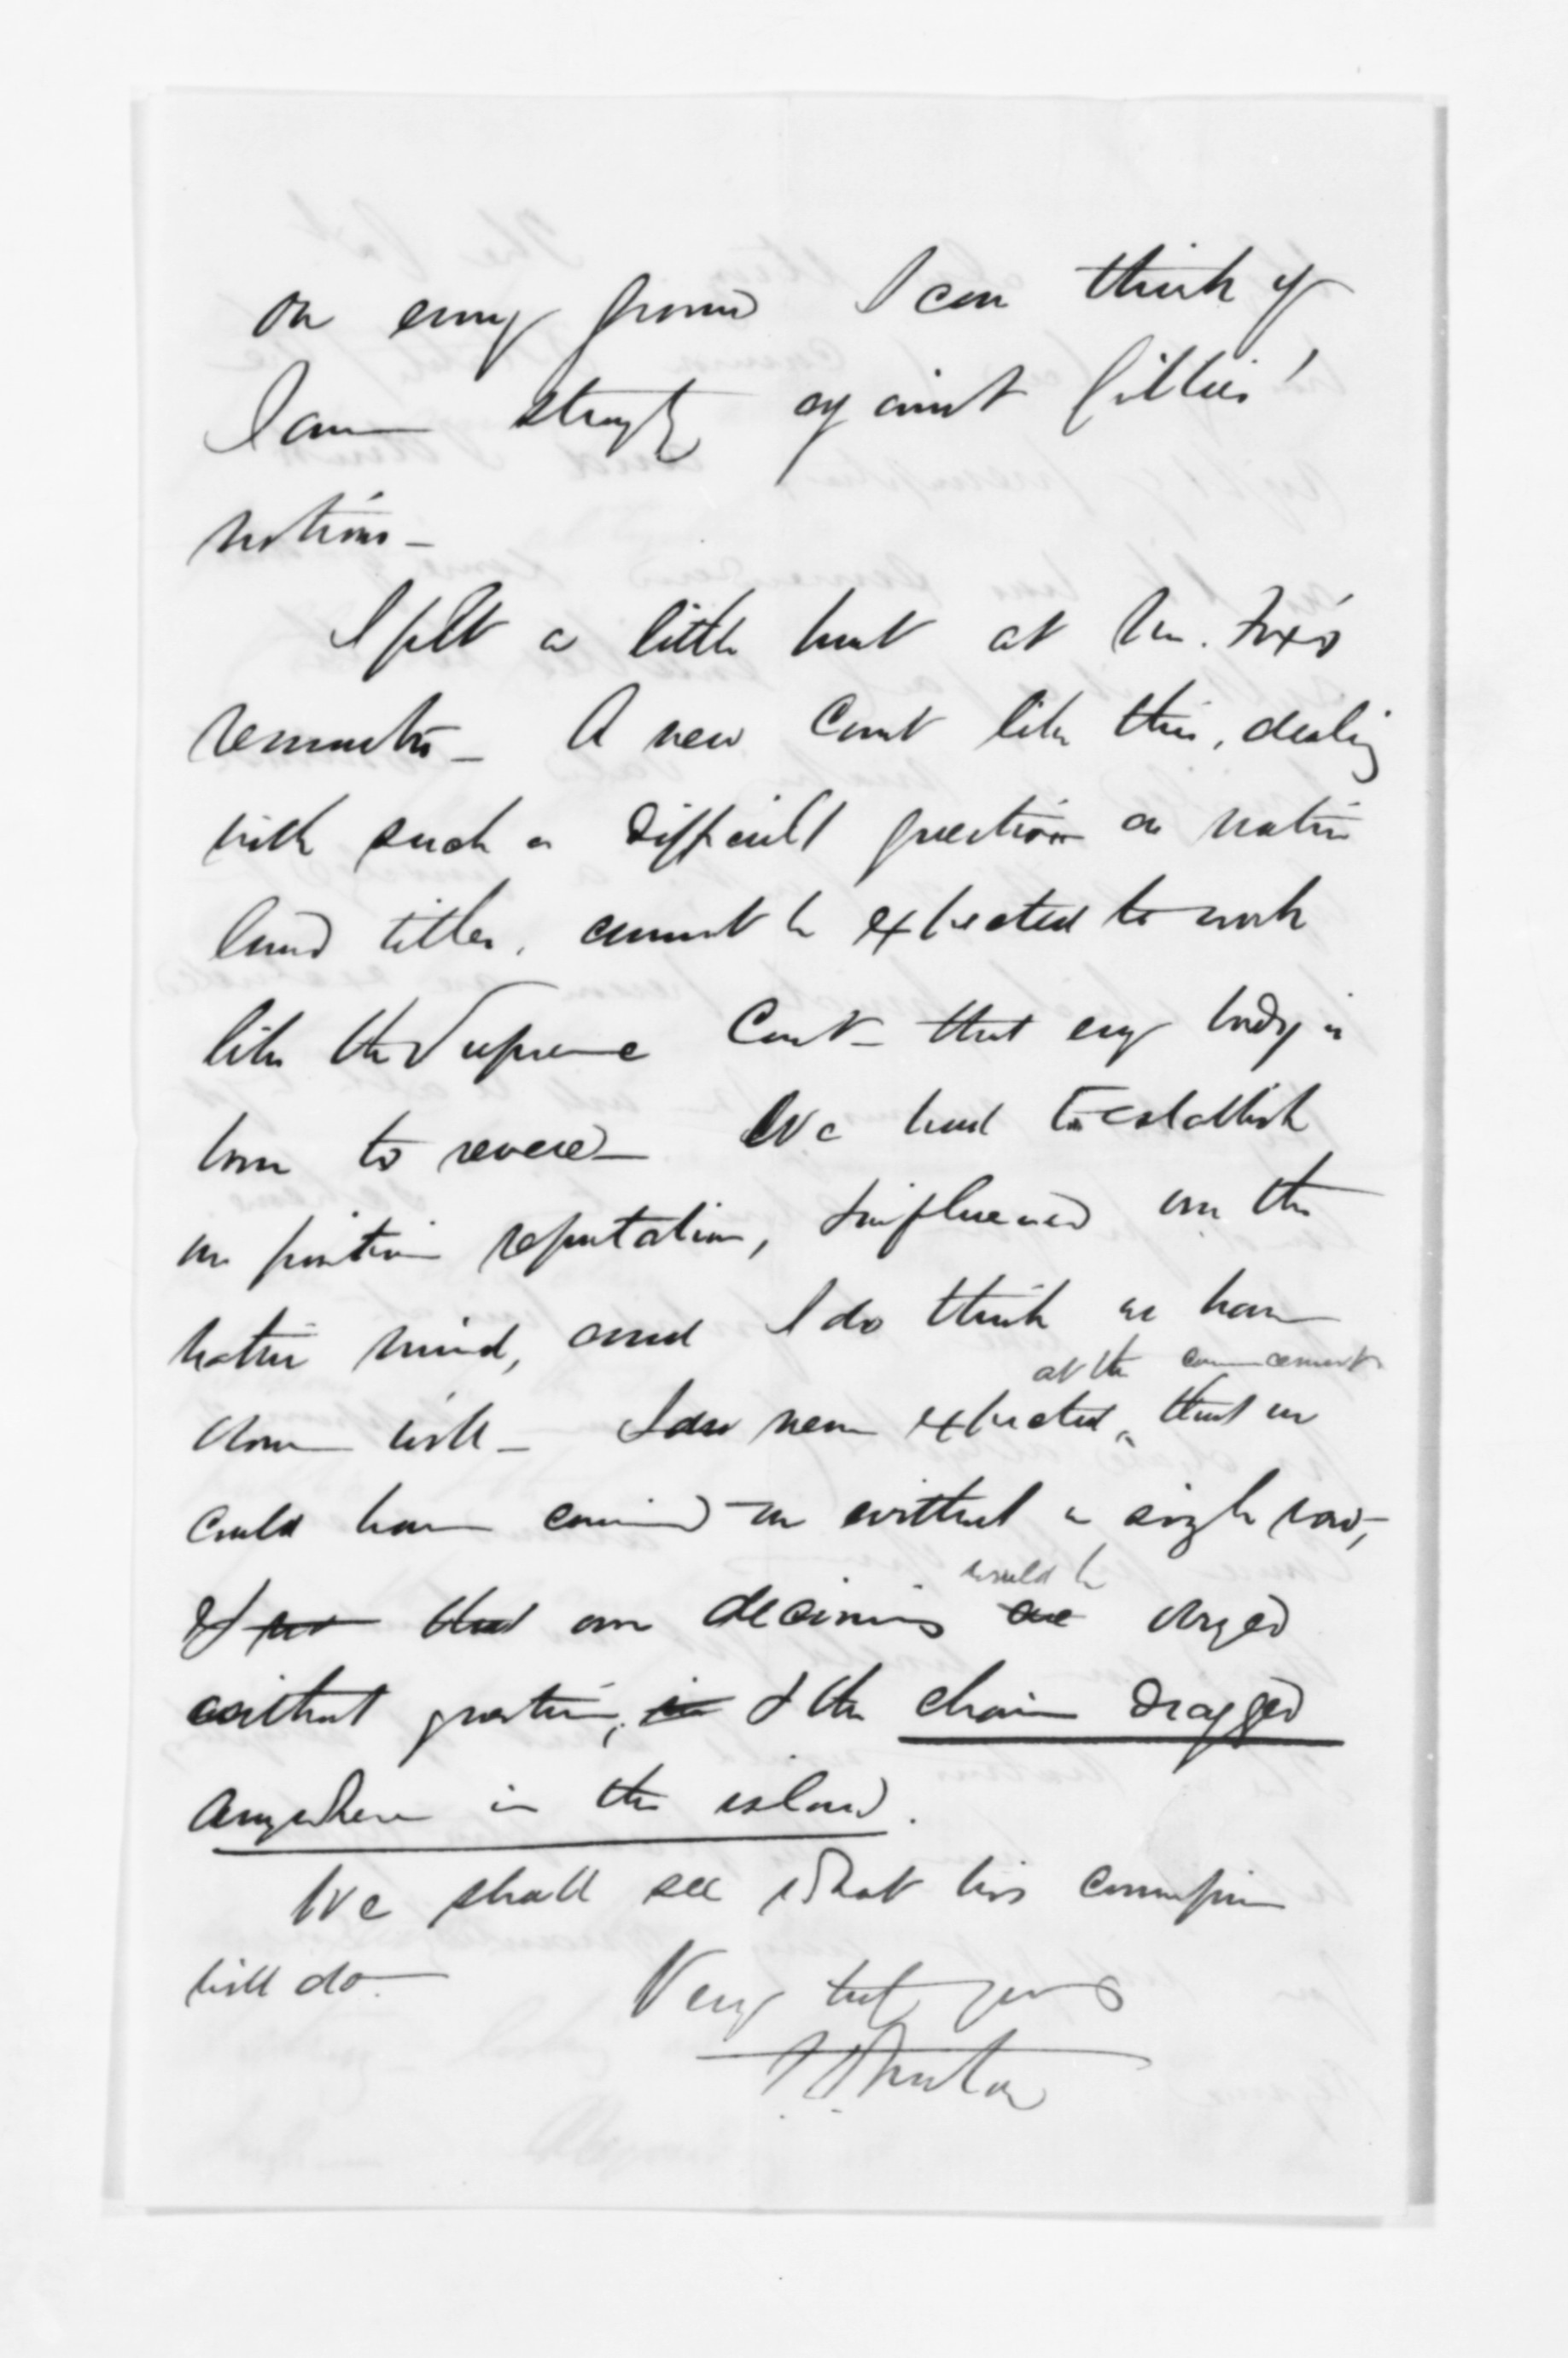 on every ground I can think of
I am strongly against Gillies'
notions –
I felt a little hurt at Mr. Fox's
remarks – A new Court like this, dealing
with such a difficult question as native
land titles, cannot be expected to work
like the Supreme Court – that every body is
born to revere – We had to establish
our position reputation, & influence on the
native mind, and I do think we have
done well – I never expected at the commencement that we
could have carried on without a single row,
& that our decisions would be obeyed
without question, & the chain dragged
anywhere in the island.
We shall see what his commission
will do – Very truly yours
F D Fenton